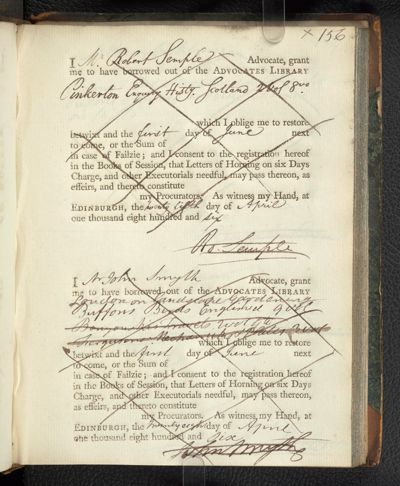 × 156
I Mr. Robert Semple Advocate, grant
me to have borrowed out of the ADVOCATES LIBRARY
Pinkerton Enquiry Histy. Scotland 2 vol 8vo
which I oblige me to restore
betwixt and the first day of June next
to come, or the Sum of
in case of Failzie; and I consent to the registration hereof
in the Books of Session, that Letters of Horning on six Days
Charge, and other Executorials needful, may pass thereon, as
effeirs, and thereto constitute
my Procurators. As witness my Hand, at
EDINBURGH, the day of April
one thousand eight hundred and six
Ro. Semple
I Mr John Smyth Advocate, grant
me to have borrowed out of the ADVOCATES LIBRARY
Loudon on Landscape Gardening
Buffons Birds Englished 9 vols
which I oblige me to restore
betwixt and the first day of June next
to come, or the Sum of
in case of Failzie; and I consent to the registration hereof
in the Books of Session, that Letters of Horning on six Days
Charge, and other Executorials needful, may pass thereon,
as effeirs, and thereto constitute
my Procurators. As witness my Hand, at
EDINBURGH, the day of April
one thousand eight hundred and six
John Smyth